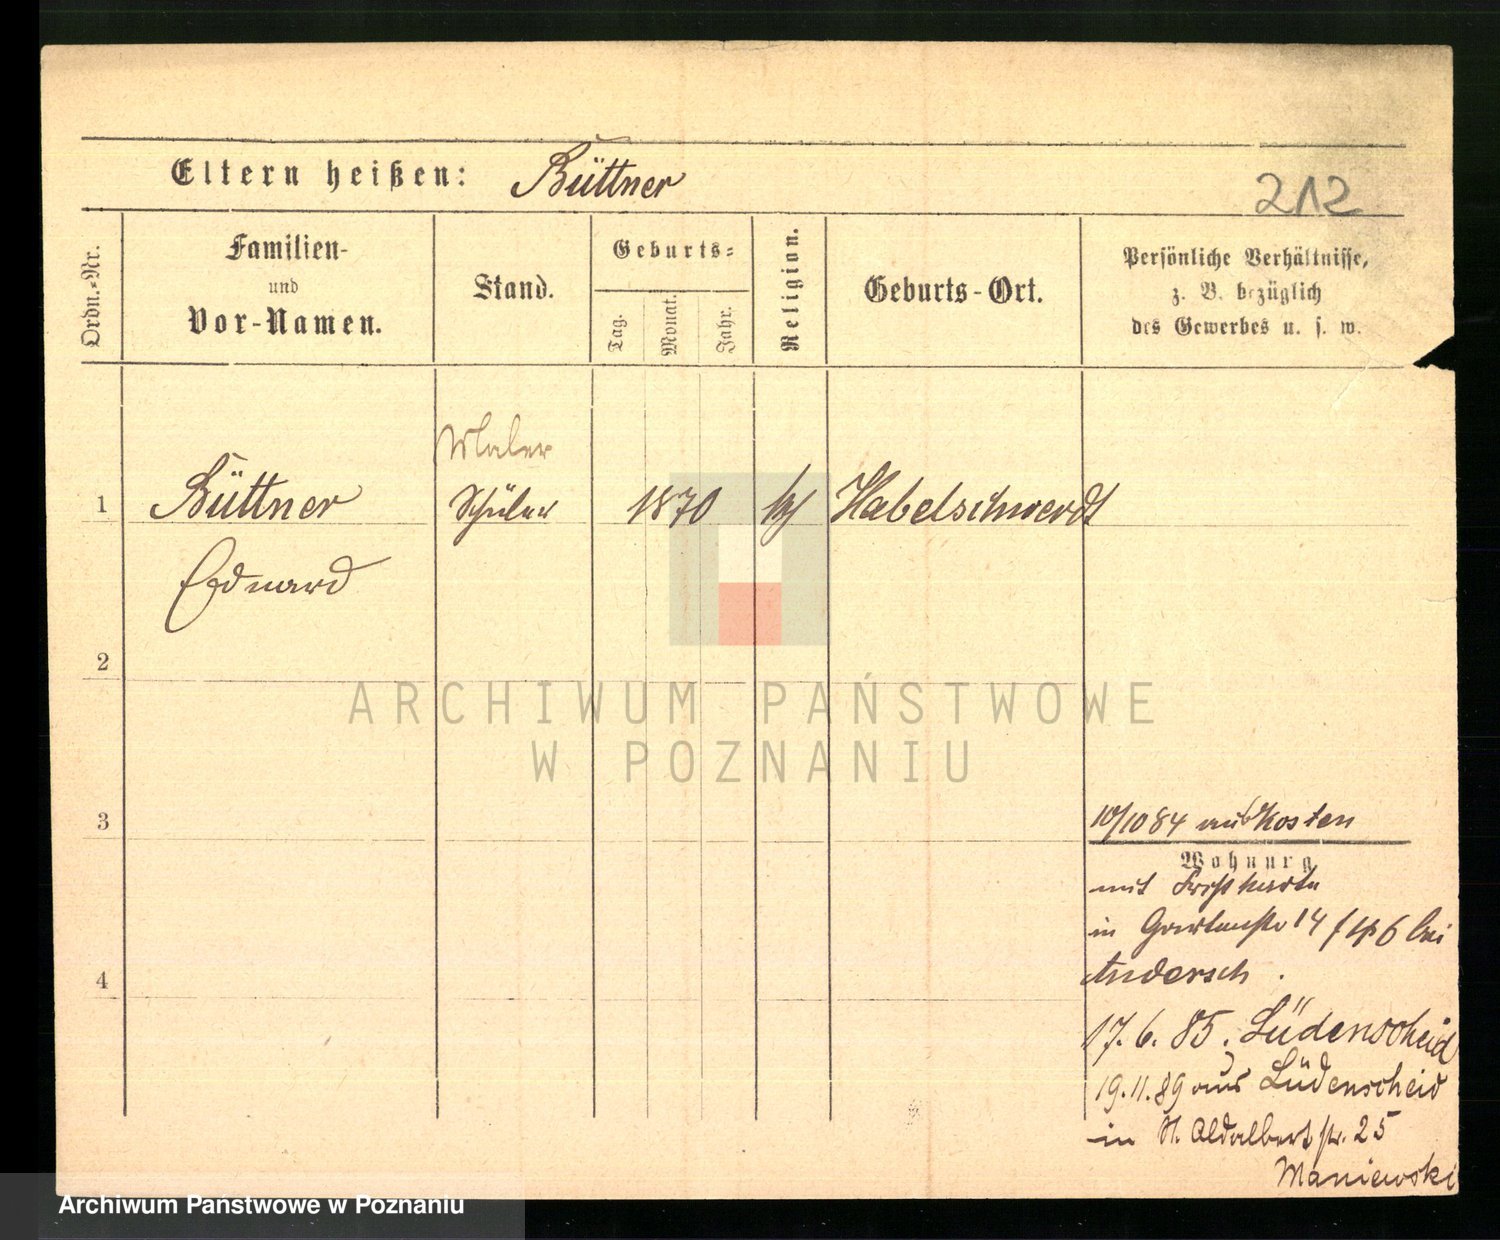 Eltern heißen: Büttner
212
Ordn.-Nr.
Familien-
und
Vor-Namen.
Stand.
Geburts-
Tag.
Monat.
Jahr.
Religion.
Geburts-Ort.
Persönliche Verhältnisse,
z. B. bezüglich
des Gewerbes u. s. w.
Maler
1 Büttner Schüler 1870 Habelschwerdt
Eduard
2
3
10/10 84 aus Kosten
Wohnung
mit
in Gartenstr 14 bei
4
Andersch.
17. 6. 85. Lüdenscheid
19. 11. 89 aus Lüdenscheid
in St. Adalbertstr. 25
Maniewski
ARCHIWUM PAŃSTWOWE
W POZNANIU
Archiwum Państwowe w Poznaniu